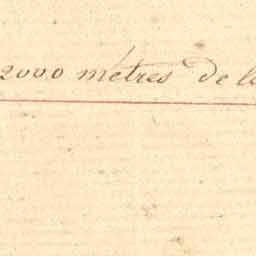 2000 mètres de la